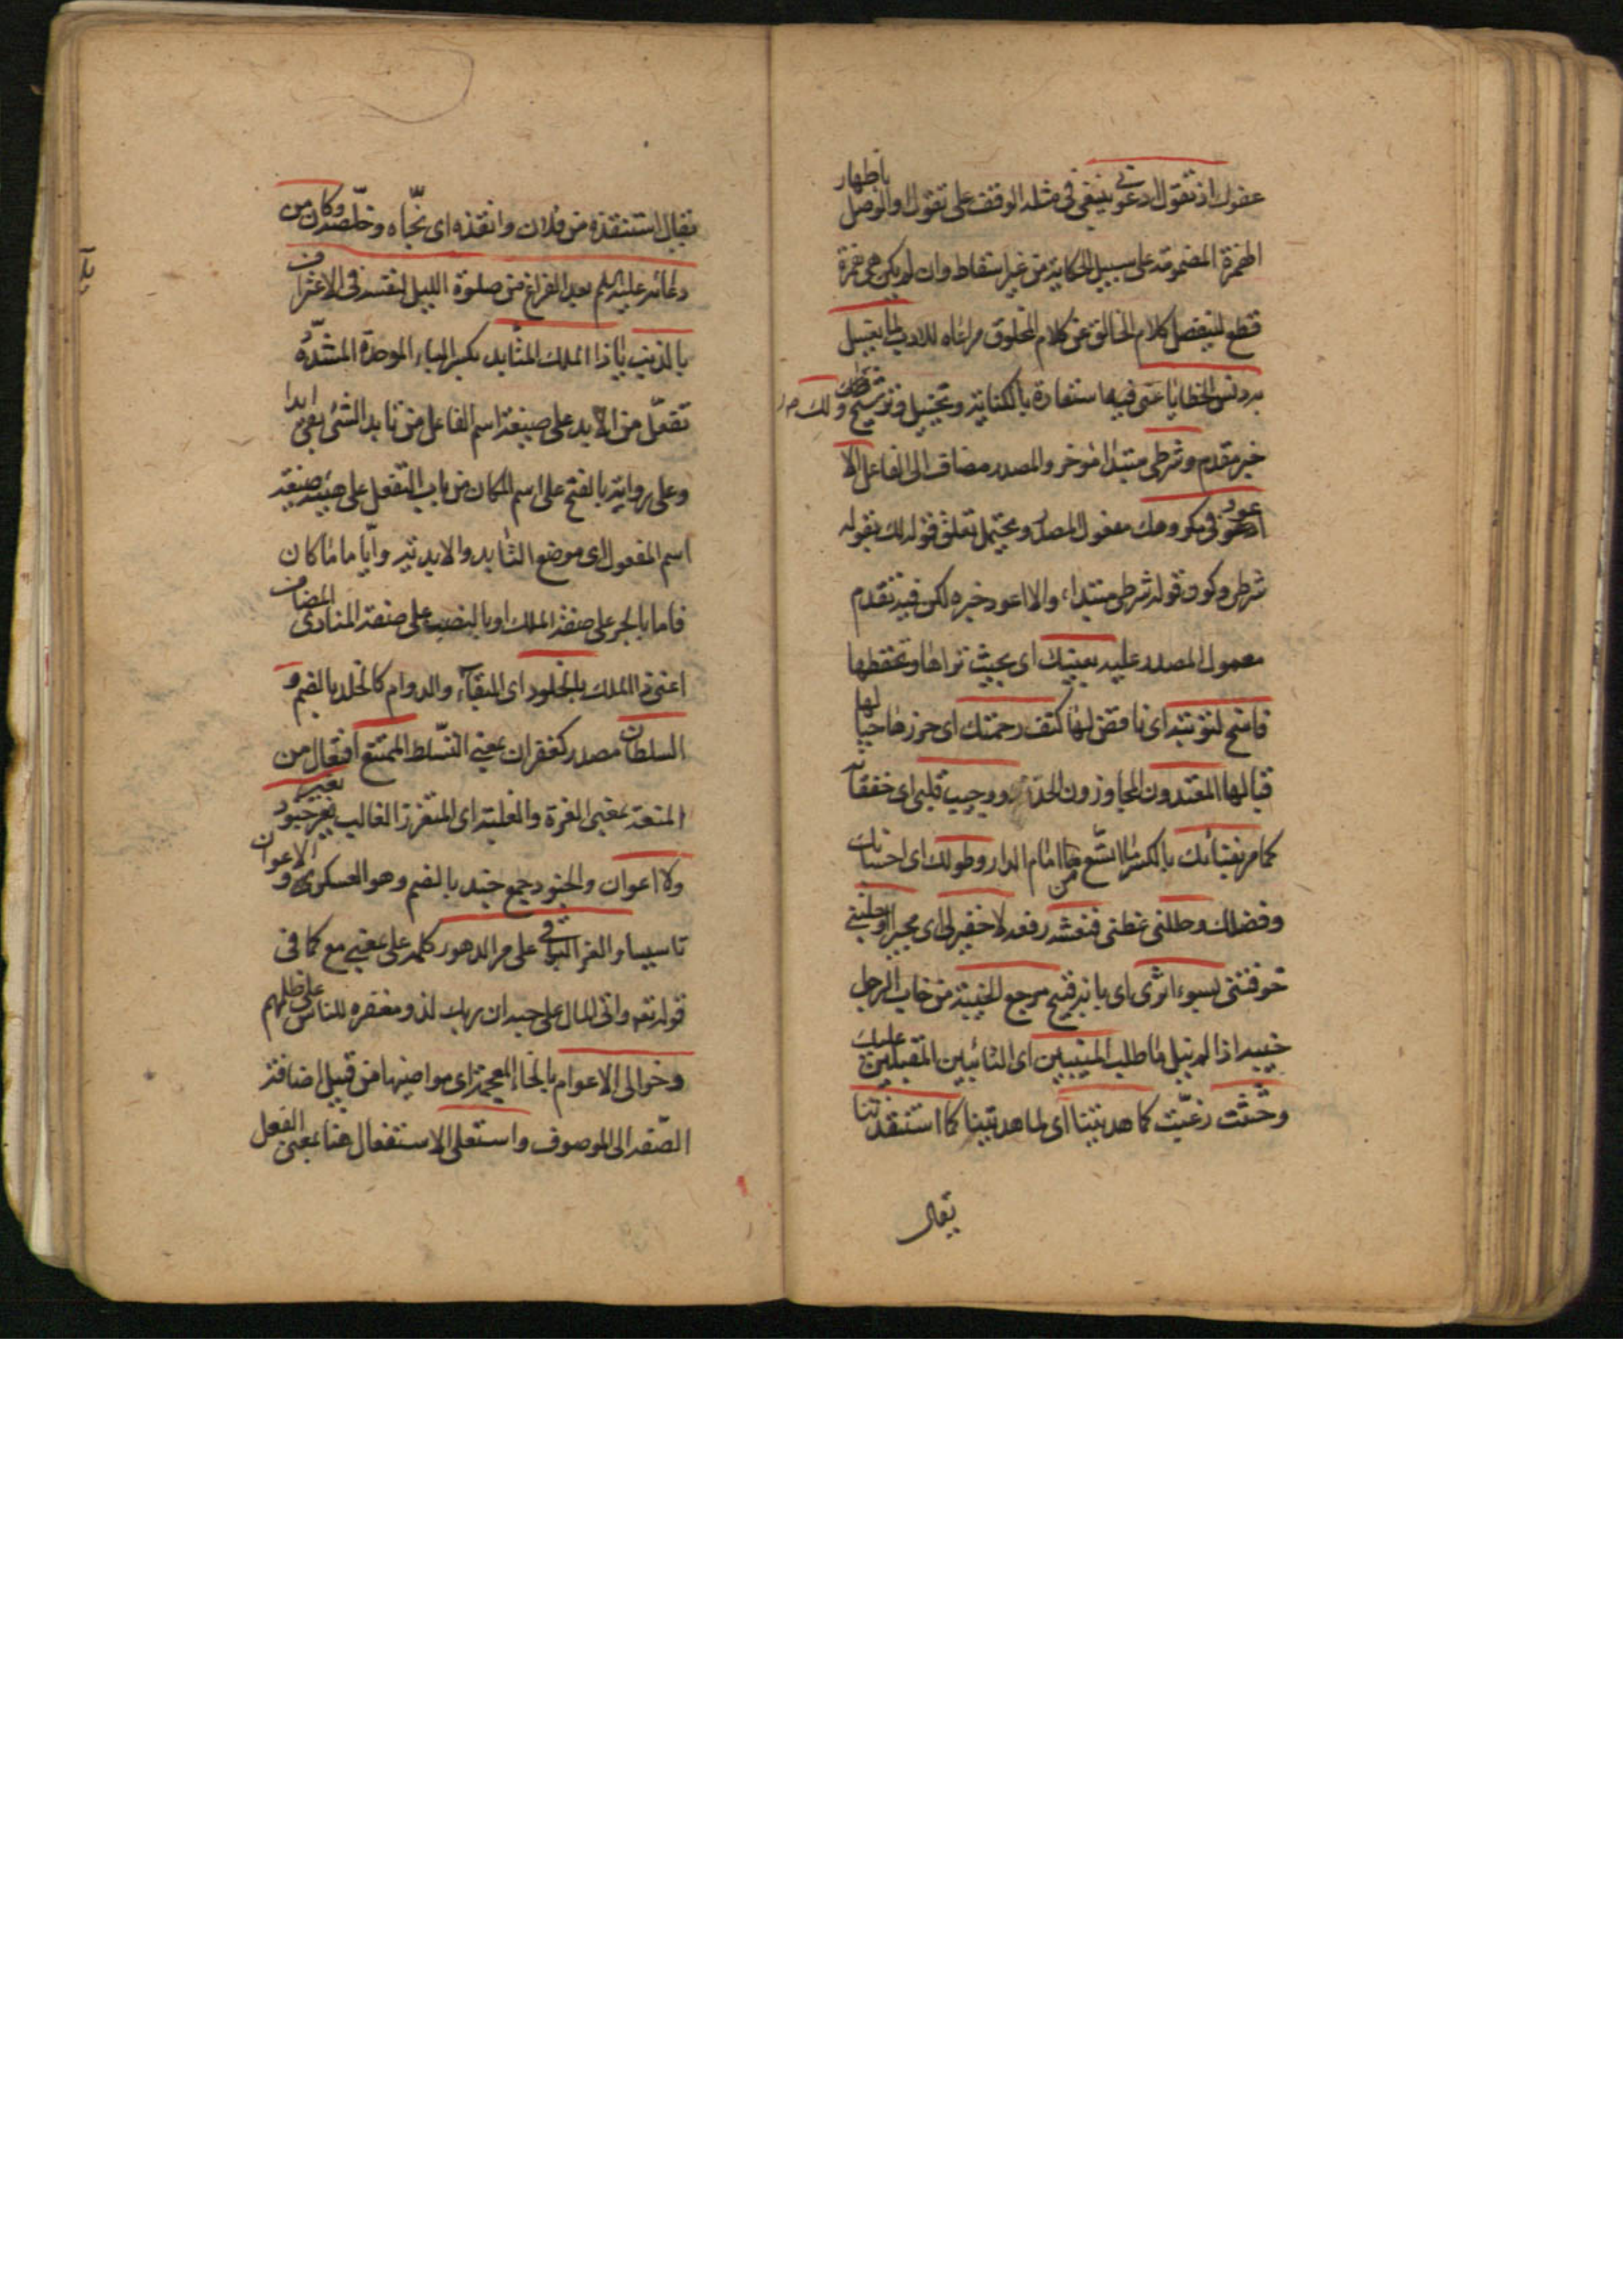 عفوك اذ تقول ادعونى ينبغى فى مثله الوقف على تقول او الوصل باظهار
الهمزة المضمومة على سبيل الحكاية من غير اسقاط وان لم يكن هى همزة
قطع لينفصل كلام الخالق عن كلام المخلوق مراعاه للادب لما يغسل
بردنس الخطايا عنى فيها استعارة بالكناية وتخييل وترشيح ولك
خبر مقدم وشرطى مبتدا مؤخر والمصدر مضاف الى الفاعل الا
اعود فى مكروهك مفعول المصدر ويحتمل تعلق قوله لك بقوله
شرطى وكون قوله شرطى مبتداء والا اعود خبره لكن فيه تقدم
معمول المصدر عليه بعينك اى بحيث تراها وتحفظها
فامنح لتوبته اى كنف رحمتك اى حرزها
المعتدون المجاوزون الحد ووجيب قلبى اى خفقانه
كما مر بفنائك بالكسر ما اتسع من امام الدار وطولك اى احسانك
وفضلك وظللنى غطنى فنعشه رفعه لا خفير لى اى مجير اوجلتنى
خوفتنى لسوء اثرى اى قبيح مرجع الخيبة من خاب الرجل
خيبة اذا لم ينل ما طلب المنيبين اى التائبين المقبلين عليك
وحثثت رغبت كما هديتنا اى لما هديتنا كما استنقذتنا
يقال
يقال استنقذه من فلان وانقذه اى نجّاه وخلّصه وكان من
دعائه عليه السلم بعد الفراغ من صلوة الليل لنفسه فى الاعتراف
بالذنب ياذا الملك المتابد بكسر الباء الموحدة المشدّدة
تفعّل من الابد على صيغة اسم الفاعل من تابد الشئ بقى ابدا
وعلى رواية بالفتح على اسم المكان من باب التفعل على هيئة صيغة
اسم المفعول اى موضع التابد والابدية وايّا ما كان
فاما بالجر على صفة الملك او بالنصب على صفة المنادى المضاف
اعنى ذا الملك بالخلود اى البقاء والدوام كالخلد بالضم و
السلطان مصدر كغفران بمعنى التسلط الممتنع افتعال من
المنعة بمعنى العزة والغلبة اى المتعزز الغالب بغير جنود
ولا اعوان والجنود جمع جند بالضم وهو العسكر والاعوان
تاسيسا والعز الباقى على مر الدهور كلمة على بمعنى مع كما فى
قوله تعه واتى المال على حبه ان ربك لذو مغفرة للناس على ظلمهم
وخوالى الاعوام بالخاء المعجمة اى مواضيها من قبيل اضافة
الصّفة الى الموصوف واستعلى الاستفعال هنا بمعنى الفعل